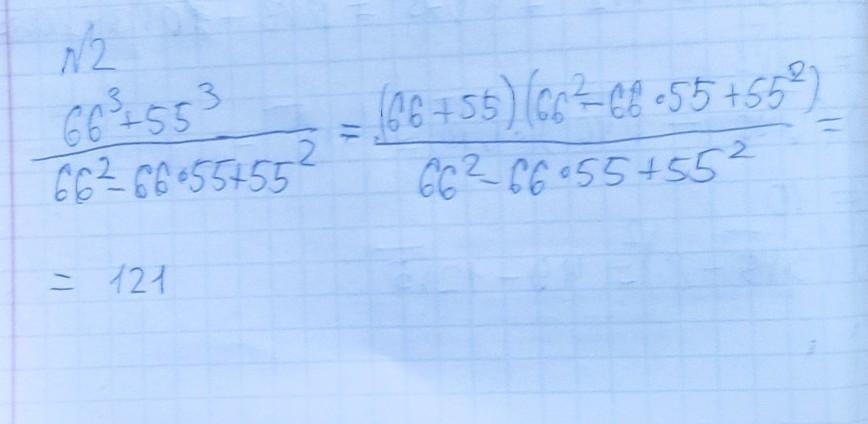 №2
66³+55³ / 66²-66•55+55² = (66+55)(66²-66•55+55²) / 66²-66•55+55² =
= 121